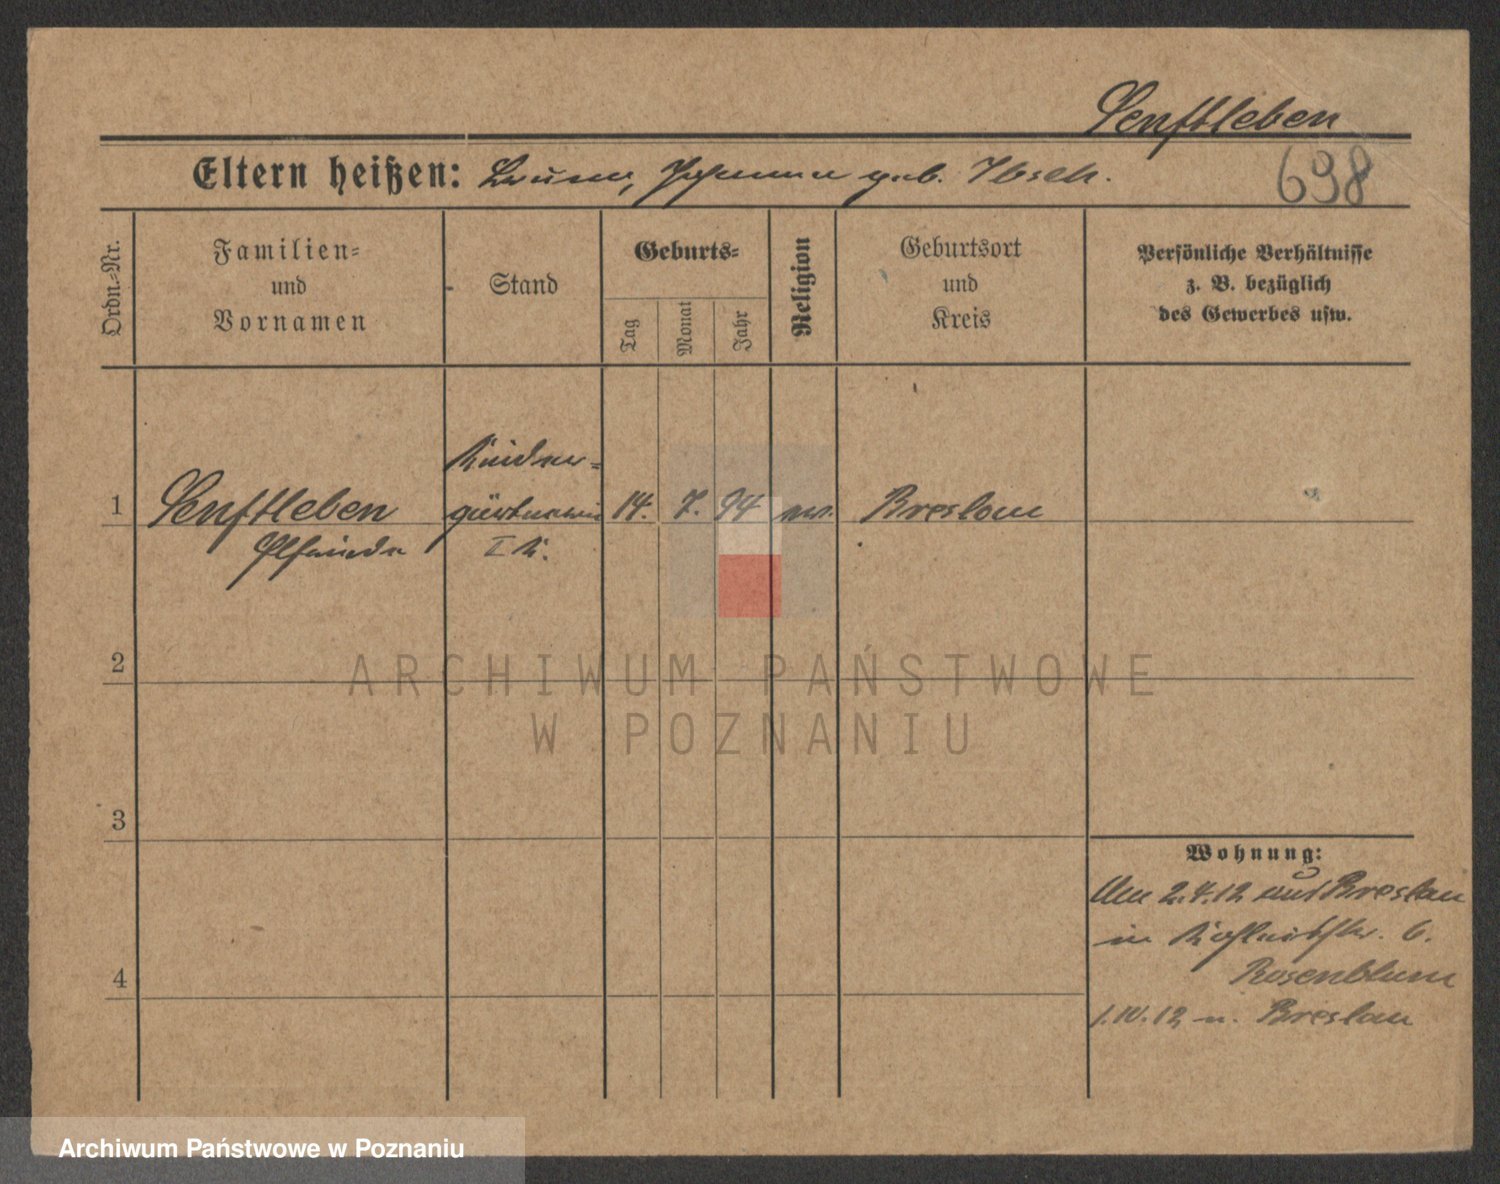 Senftleben
Eltern heißen: Bruno, Johanna geb. Ibsch.
698
Ordn.-Nr.
Familien-
und
Vornamen
Stand
Geburts-
Tag
Monat
Jahr
Religion
Geburtsort
und
Kreis
Persönliche Verhältnisse
z. B. bezüglich
des Gewerbes usw.
Kinder-
1 Senftleben gärtnerin 14. 7. 94 ev. Breslau
Elfriede I K.
2
3
4
Wohnung:
Am 2.4.12 aus Breslau
in 6.
Rosenblum
1.IV.12 n. Breslau
ARCHIWUM PAŃSTWOWE
W POZNANIU
Archiwum Państwowe w Poznaniu